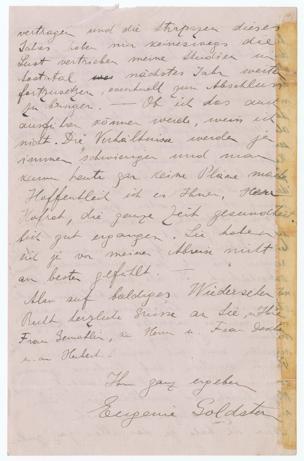 vertragen und die Strapazen dieses
Jahres haben mir keineswegs die
Lust vertrieben meine Studien im
nächstes Jahr weiter
fortzusetzen, eventuell zum Abschluss
zu bringen. — Ob ich das auch
ausführen können werde, weiss ich
nicht. Die Verhältnisse werden ja
immer schwieriger und man
kann heute gar keine Pläne machen
Hoffentlich ist es Ihnen, Herr
Hofrat, die ganze Zeit gesundheit-
lich gut ergangen. Sie haben
sich ja vor meiner Abreise nicht
am besten gefühlt. —
Also auf baldiges Wiedersehen
herzliche Grüsse an Sie, Ihre
Frau Gemahlin, Herrn u. Frau
u. an Herbert.
Ihre ganz ergebene
Eugenie Goldstern